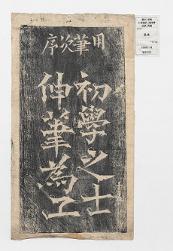 用筆次序
初學之士
伸筆為工